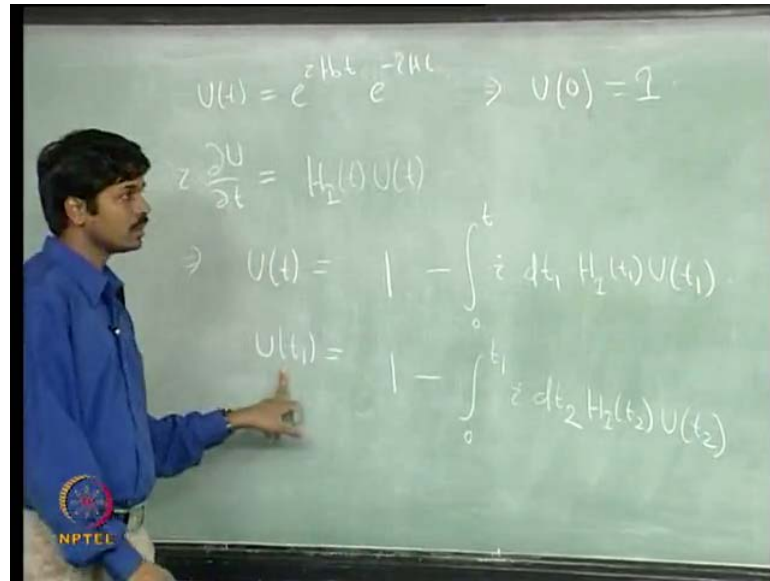 U(t) = e^{iH₀t} e^{-iHt} ⇒ U(0) = 1
i ∂U/∂t = H_I(t) U(t)
⇒ U(t) = 1 - ∫₀^t i dt₁ H_I(t₁) U(t₁).
U(t₁) = 1 - ∫₀^{t₁} i dt₂ H_I(t₂) U(t₂)
NPTEL